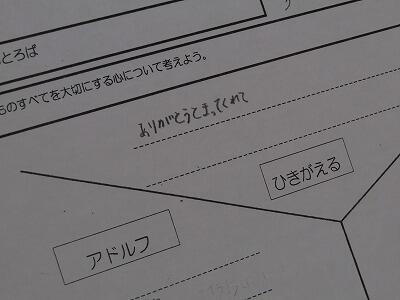 とろば
のすべてを大切にする心について考えよう。
ありがとうてまってくれて
ひきがえる
アドルフ